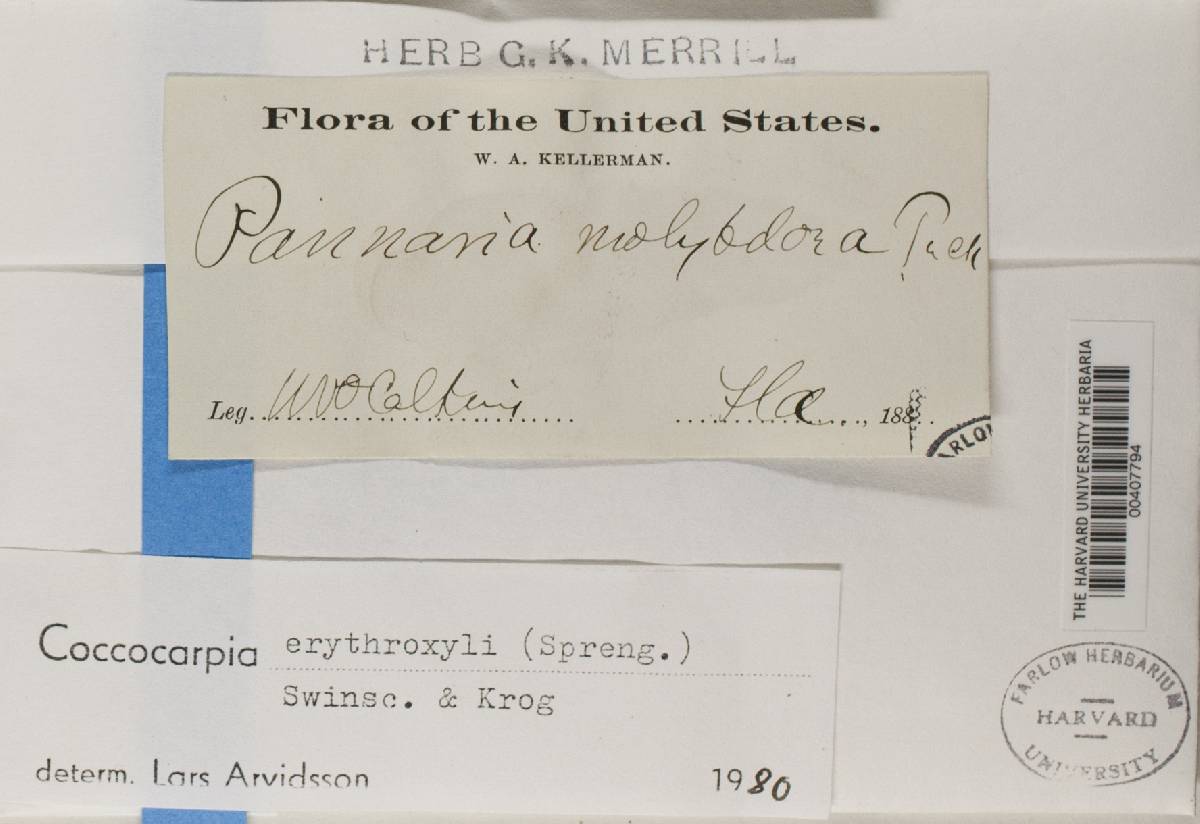 HERB G. K. MERRILL
Flora of the United States.
W. A. KELLERMAN.
Pannaria molybdora Tuck
Leg. W W Calkins Fla , 188
ARLO
THE HARVARD UNIVERSITY HERBARIA
00407794
Coccocarpia erythroxyli (Spreng.)
Swinsc. & Krog
determ. Lars Arvidsson 1980
FARLOW HERBARIUM
HARVARD
UNIVERSITY